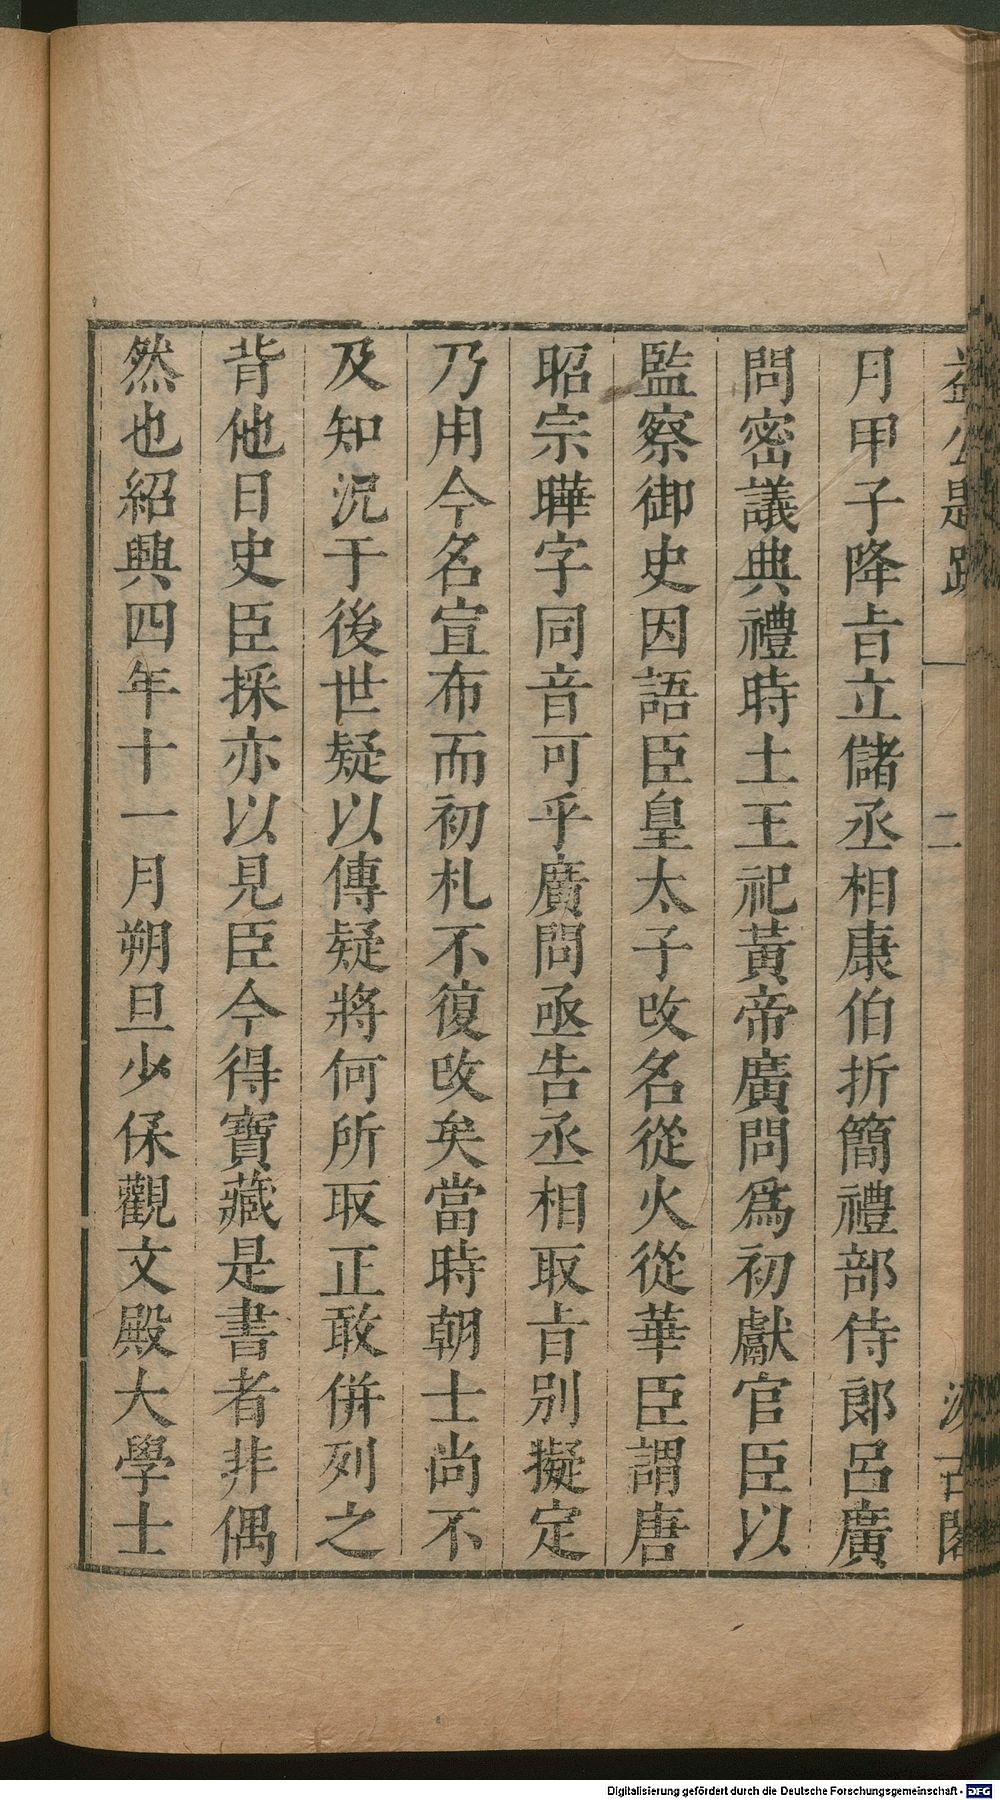 益公題跋 二 汲古閣
月甲子降㫖立儲丞相康伯折簡禮部侍郞呂廣
問密議典禮時土王祀黃帝廣問爲初獻官臣以
監察御史因語臣皇太子改名從火從華臣謂唐
昭宗曄字同音可乎廣問亟告丞相取㫖別擬定
乃用今名宣布而初札不復改矣當時朝士尚不
及知況于後世疑以傳疑將何所取正敢併列之
背他日史臣採亦以見臣今得寶藏是書者非偶
然也紹興四年十一月朔旦少保觀文殿大學士
Digitalisierung gefördert durch die Deutsche Forschungsgemeinschaft - DFG